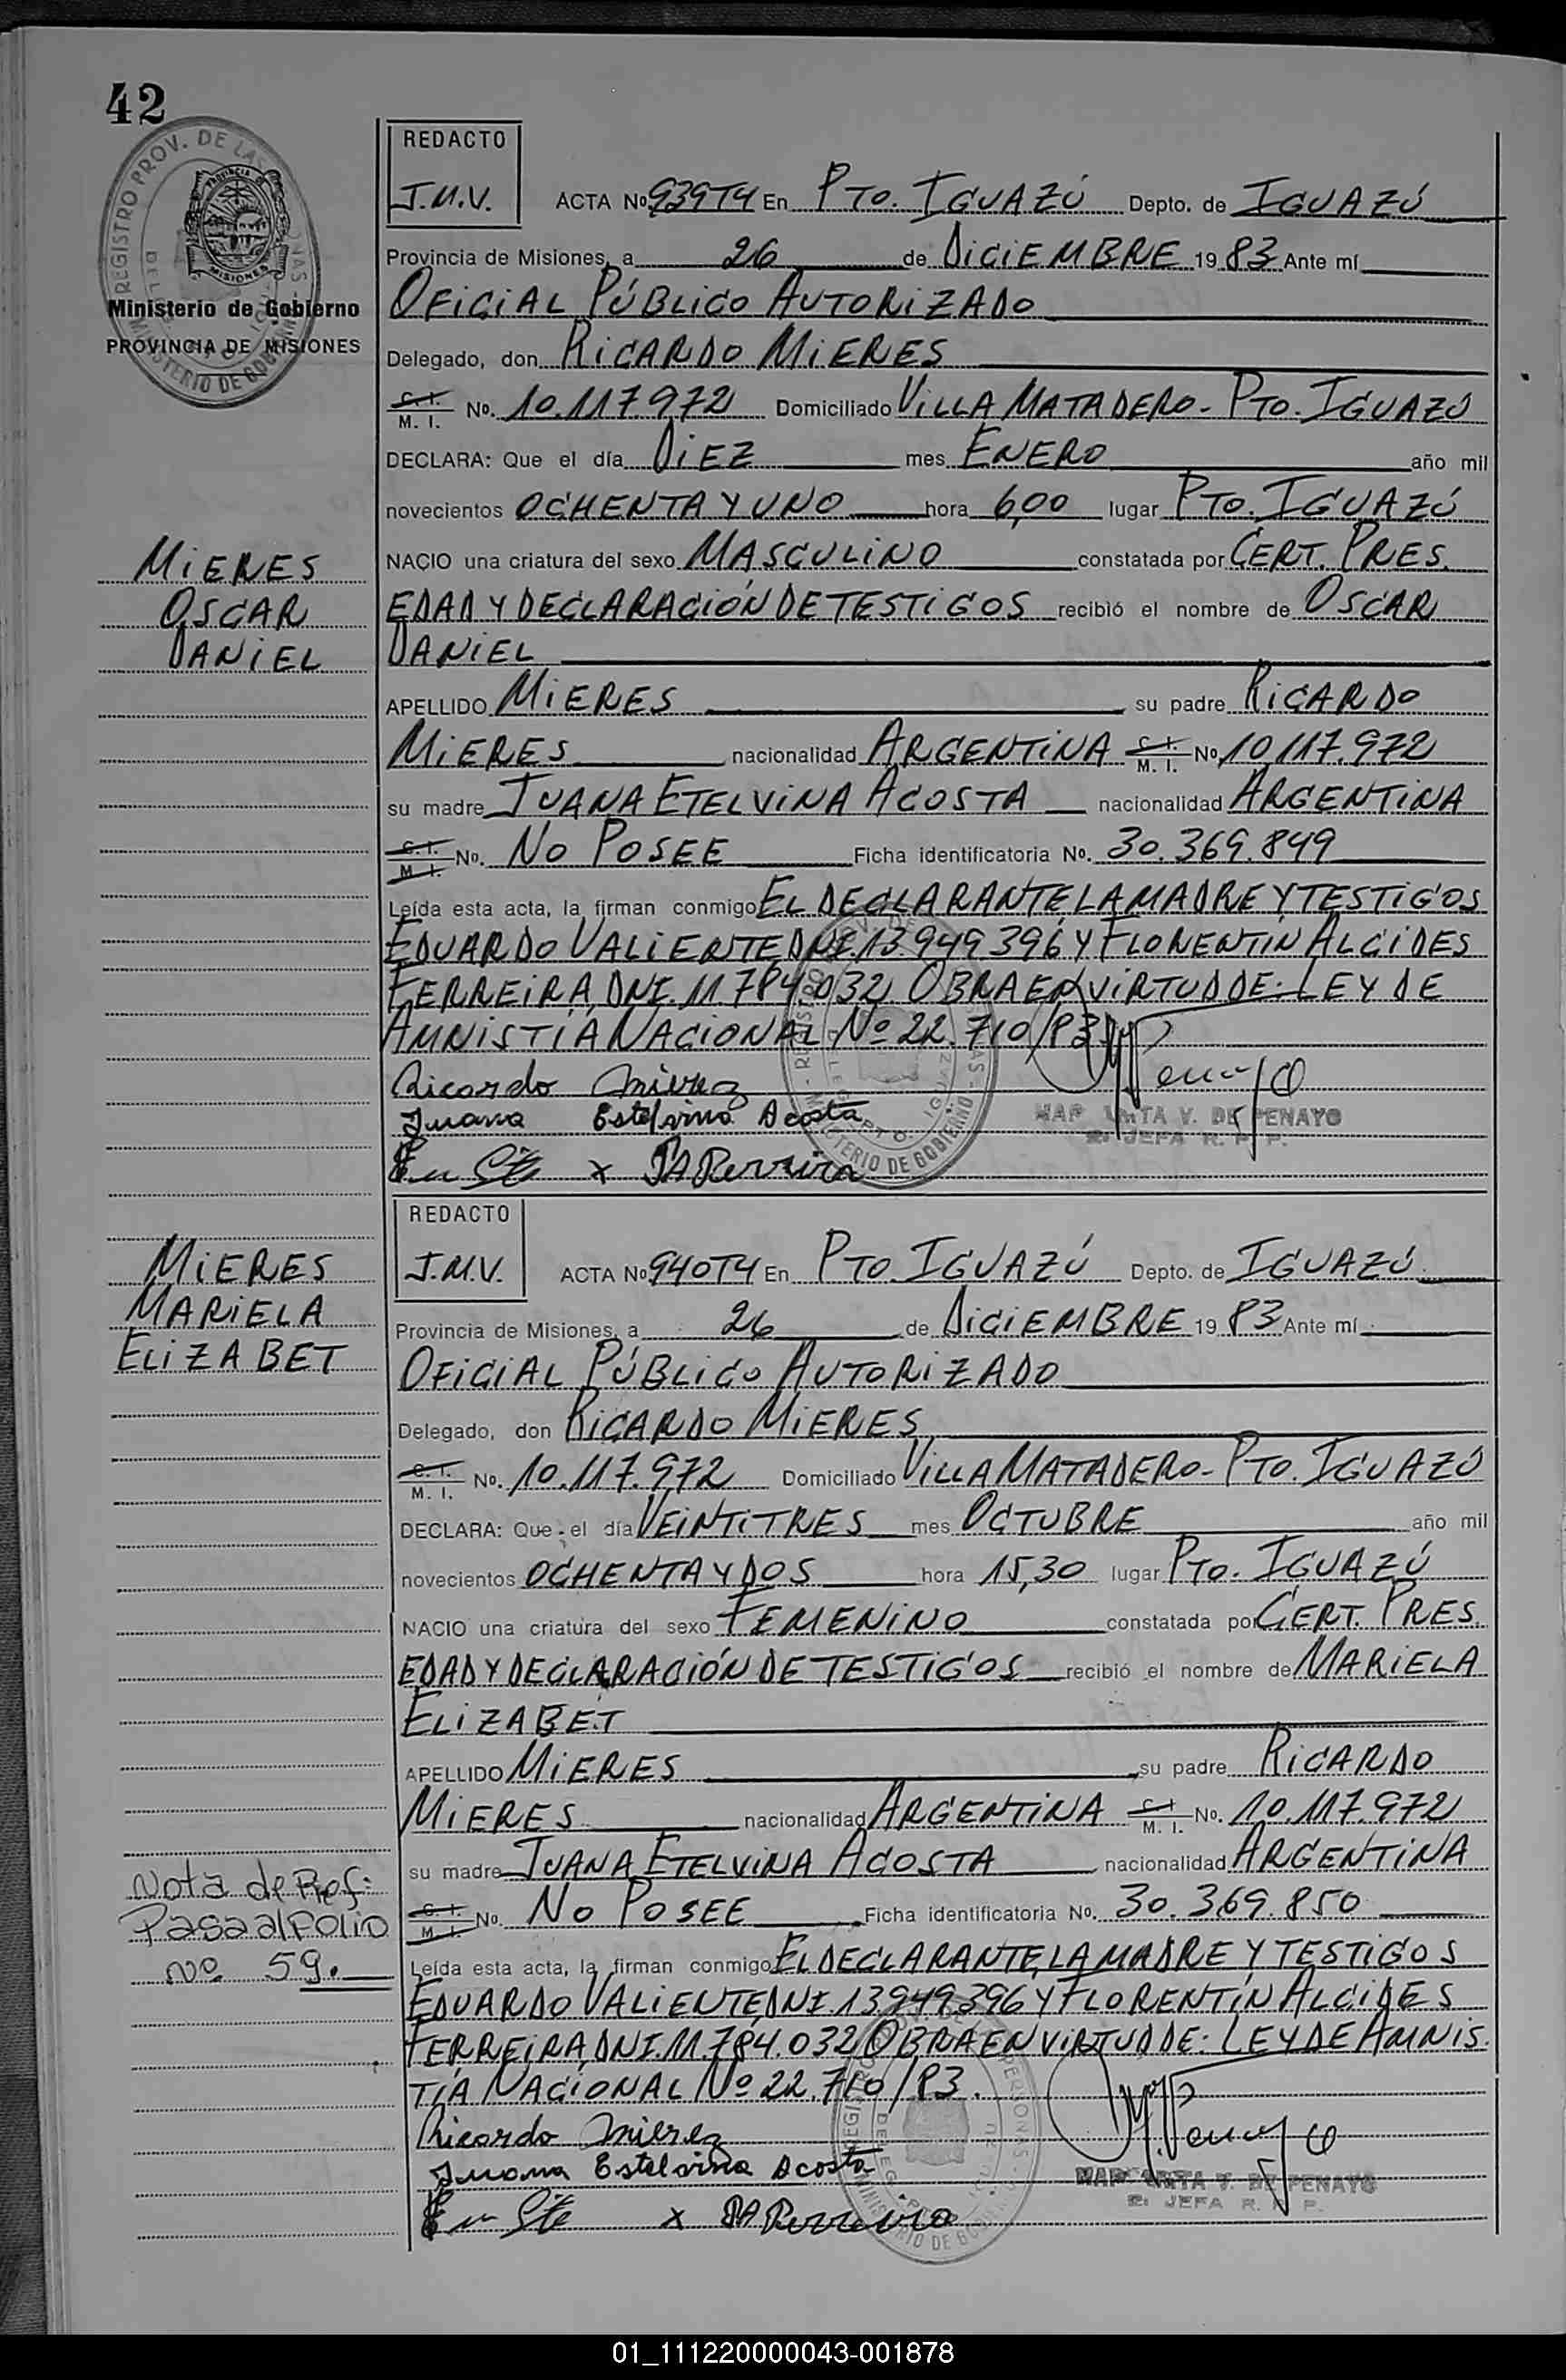 42
REGISTRO PROV. DE LAS
MISIONES
Ministerio de Gobierno
PROVINCIA DE MISIONES
REDACTO
J.M.V.
ACTA No 939T4 En PTO. IGUAZÚ Depto. de IGUAZÚ
Provincia de Misiones, a 26 de DICIEMBRE 19 83 Ante mí
OFICIAL PÚBLICO AUTORIZADO
Delegado, don RICARDO MIERES
C. I. M. I. No. 10.117.972 Domiciliado VILLA MATADERO - PTO. IGUAZÚ
DECLARA: Que el día DIEZ mes ENERO año mil
novecientos OCHENTA Y UNO hora 6,00 lugar PTO. IGUAZÚ
NACIO una criatura del sexo MASCULINO constatada por CERT. PRES.
EDAD Y DECLARACIÓN DE TESTIGOS recibió el nombre de OSCAR
DANIEL
APELLIDO MIERES su padre RICARDO
MIERES nacionalidad ARGENTINA C. I. M. I. No 10.117.972
su madre JUANA ETELVINA ACOSTA nacionalidad ARGENTINA
C. I. M. I. No. NO POSEE Ficha identificatoria No. 30.369.849
Leída esta acta, la firman conmigo EL DECLARANTE, LA MADRE Y TESTIGOS
EDUARDO VALIENTE DNI. 13.949.396 Y FLORENTÍN ALCIDES
FERREIRA, DNI. 11.784.032 OBRA EN VIRTUD DE: LEY DE
AMNISTÍA NACIONAL Nº 22.710/83
Ricardo Mierez
Juana Estelvina Acosta
MARGARITA V. DE PENAYO
JEFA R. P. P.
MIERES
OSCAR
DANIEL
REDACTO
J.M.V.
ACTA No 940T4 En PTO. IGUAZÚ Depto. de IGUAZÚ
Provincia de Misiones, a 26 de DICIEMBRE 19 83 Ante mí
OFICIAL PÚBLICO AUTORIZADO
Delegado, don RICARDO MIERES
C. I. M. I. No. 10.117.972 Domiciliado VILLA MATADERO - PTO. IGUAZÚ
DECLARA: Que el día VEINTITRES mes OCTUBRE año mil
novecientos OCHENTA Y DOS hora 15,30 lugar PTO. IGUAZÚ
NACIO una criatura del sexo FEMENINO constatada por CERT. PRES.
EDAD Y DECLARACIÓN DE TESTIGOS recibió el nombre de MARIELA
ELIZABET
APELLIDO MIERES su padre RICARDO
MIERES nacionalidad ARGENTINA C. I. M. I. No. 10.117.972
su madre JUANA ETELVINA ACOSTA nacionalidad ARGENTINA
C. I. M. I. No. NO POSEE Ficha identificatoria No. 30.369.850
Leída esta acta, la firman conmigo EL DECLARANTE, LA MADRE Y TESTIGOS
EDUARDO VALIENTE DNI 13949396 Y FLORENTÍN ALCIDES
FERREIRA, DNI. 11.784.032 OBRA EN VIRTUD DE: LEY DE AMNIS
TÍA NACIONAL Nº 22.710/83.
Ricardo Mierez
Juana Estelvina Acosta
MARGARITA V. DE PENAYO
JEFA R. P. P.
MIERES
MARIELA
ELIZABET
Nota de Ref:
Pasa al Folio
nº 59.
01_111220000043-001878